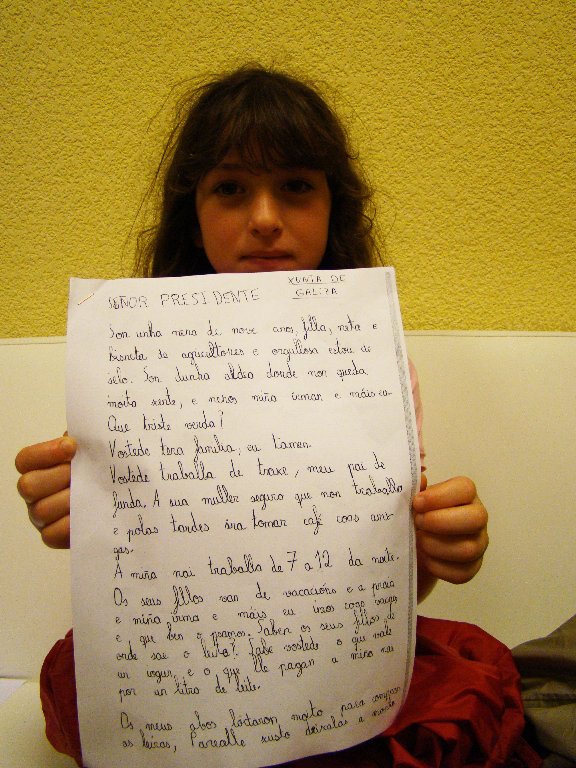 SEÑOR PRESIDENTE
XUNTA DE
GALIZA
Son unha nena de nove anos, filla, neta e
bisneta de agricultores e orgullosa estou de
selo. Son dunha aldea donde non queda
moita xente, e nenos miña irmán e máis eu.
Que triste verda?
Vostede tera familia, eu tamen.
Vostede traballa de traxe, meu pai de
funda. A sua muller seguro que non traballa
e polas tardes ira tomar café coas ami-
gas.
A miña nai traballa de 7 a 12 da noite.
Os seus fillos van de vacacións e a praia
e miña irma e mais eu imos coas vacas
e que ben o pasamos. Saben os seus fillos de
onde sae o leite? Sabe vostede o que vale
un iogur, e o que lle pagan a miña nai
por un litro de leite.
Os meus abos loitaron moito para comprar
as leiras, Parcalle xusto deixalas a monte